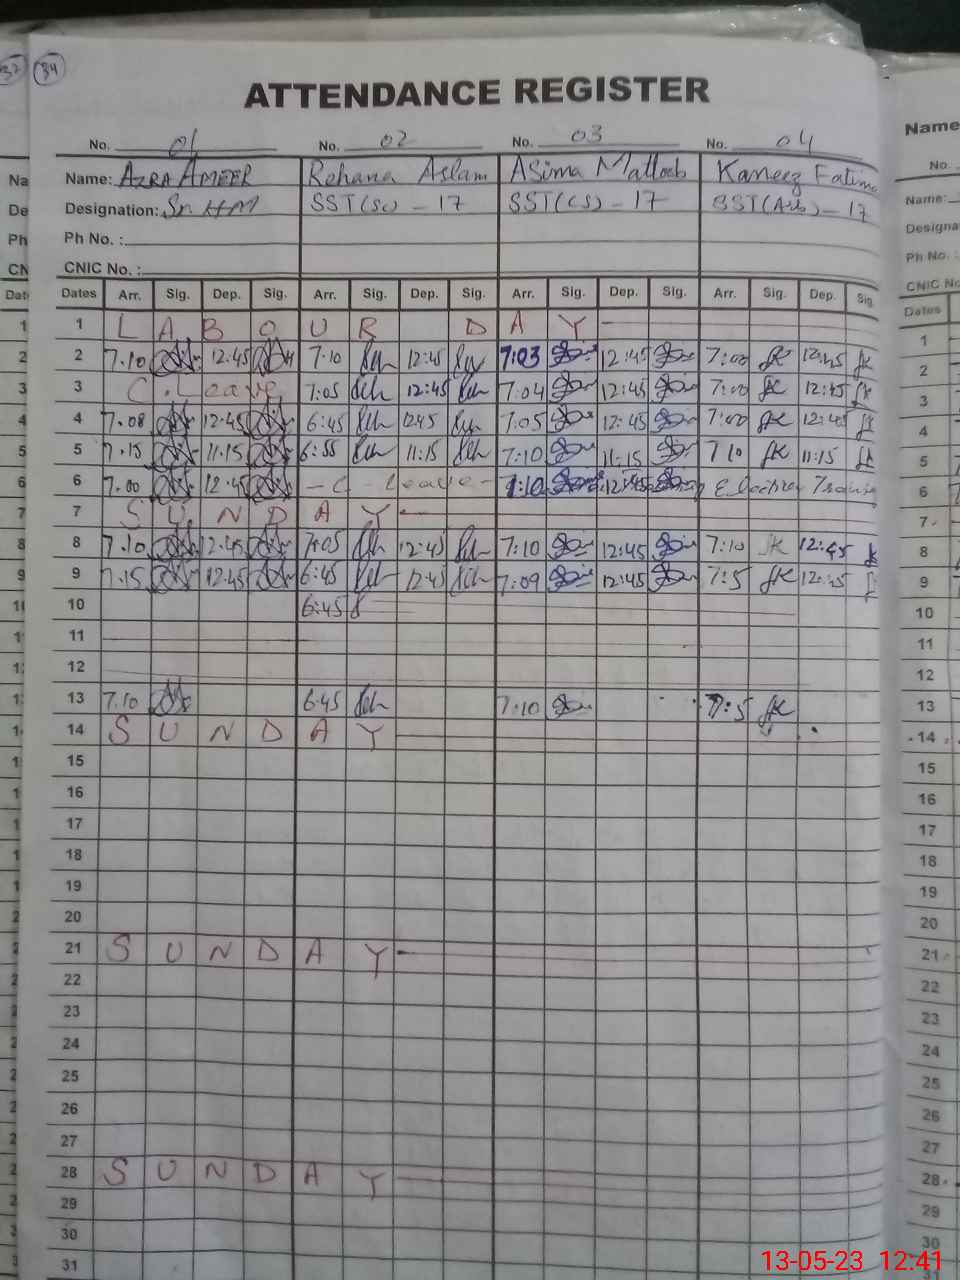 37 34
ATTENDANCE REGISTER
No. 01 No. 02 No. 03 No. 04
Name: AZRA AMEER Rehana Aslam Asima Matloob Kaneez Fatima
Designation: Sr. HM SST(Sc) - 17 SST(CS) - 17 SST(Arts) - 17
Ph No. :
CNIC No. :
Dates Arr. Sig. Dep. Sig. Arr. Sig. Dep. Sig. Arr. Sig. Dep. Sig. Arr. Sig. Dep. Sig.
1 LABOUR DAY
2 7.10 12.45 7:10 12:45 7:03 12:45 7:00 12:45
3 C. Leave 7:05 12:45 7:04 12:45 7:00 12:45
4 7.08 12.45 6:45 12:45 7:05 12:45 7:00 12:45
5 7.15 11.15 6:55 11:15 7:10 11:15 7 10 11:15
6 7.00 12.45 - C - Leave - 7:10 12:45 Election Training
7 SUNDAY
8 7.10 12.45 7:05 12:45 7:10 12:45 7:10 12:45
9 7.15 12.45 6:45 12:45 7:09 12:45 7:5 12:45
10 6:45
11
12
13 7.10 6:45 7:10 7:5
14 SUNDAY
15
16
17
18
19
20
21 SUNDAY
22
23
24
25
26
27
28 SUNDAY
29
30
31
Name
No.
Name:
Designa
Ph No. :
CNIC No
Dates
1
2
3
4
5
6
7
8
9
10
11
12
13
14
15
16
17
18
19
20
21
22
23
24
25
26
27
28
29
30
13-05-23 12:41